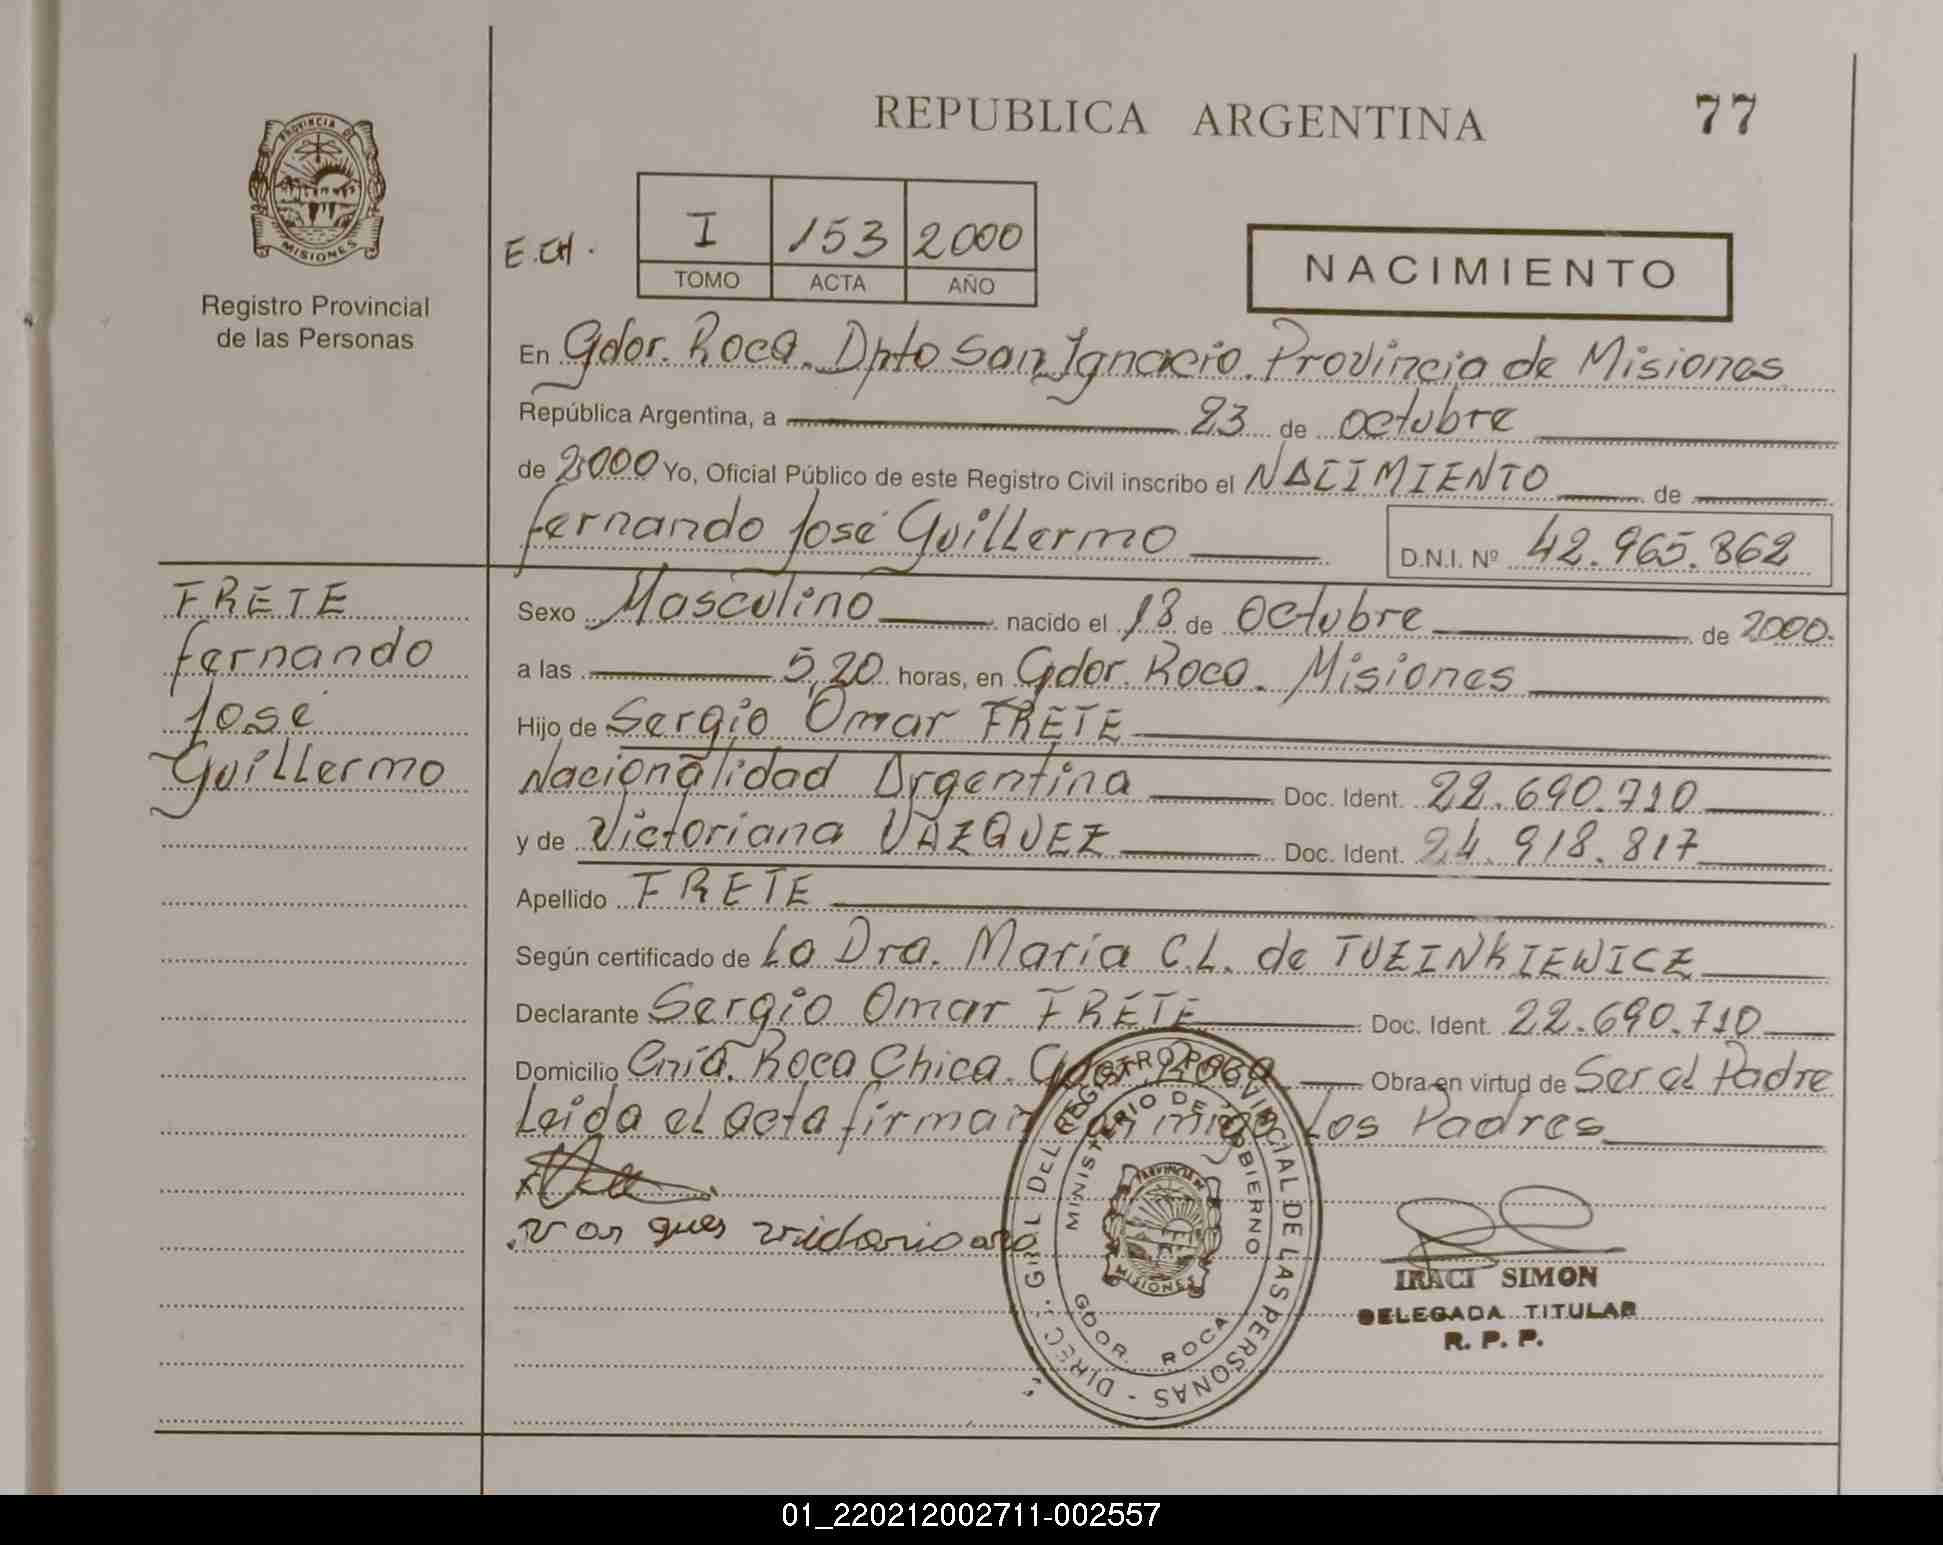 REPUBLICA ARGENTINA
77
PROVINCIA DE
MISIONES
Registro Provincial
de las Personas
E.CH.
I 153 2000
TOMO ACTA AÑO
NACIMIENTO
En Gdor. Roca. Dpto San Ignacio. Provincia de Misiones
República Argentina, a 23 de octubre
de 2000 Yo, Oficial Público de este Registro Civil inscribo el NACIMIENTO de
Fernando José Guillermo
D.N.I. Nº 42.965.862
FRETE
Fernando
José
Guillermo
Sexo Masculino nacido el 18 de Octubre de 2000.
a las 5,20 horas, en Gdor. Roca. Misiones
Hijo de Sergio Omar FRETE
Nacionalidad Argentina Doc. Ident. 22.690.710
y de Victoriana VAZQUEZ Doc. Ident. 24.918.817
Apellido FRETE
Según certificado de La Dra. María C.L. de TUZINKIEWICZ
Declarante Sergio Omar FRETE Doc. Ident. 22.690.710
Domicilio Cnia. Roca Chica. Gdor. Roca Obra en virtud de Ser el Padre
Leida el acta firman conmigo Los Padres
DIREC. GRAL DEL REGISTRO PROVINCIAL DE LAS PERSONAS -
MINISTERIO DE GOBIERNO
PROVINCIA DE
MISIONES
GDOR. ROCA
IRACI SIMON
DELEGADA TITULAR
R. P. P.
01_220212002711-002557